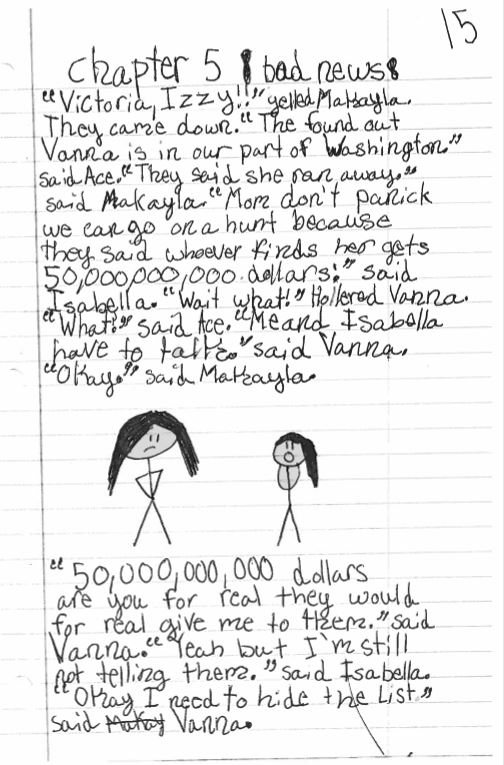 15
chapter 5 bad news
"Victoria, Izzy!!" yelled Makayla.
They came down. "The found out
Vanna is in our part of Washington."
said Ace. "They said she ran away."
said Makayla. "Mom don't panick
we can go on a hunt because
they said whoever finds her gets
50,000,000,000 dollars!" said
Isabella. "Wait what!" Hollered Vanna.
"What!" said Ace. "Me and Isabella
have to talk." said Vanna.
"Okay." said Makayla.
"50,000,000,000 dollars
are you for real they would
for real give me to them." said
Vanna. "Yeah but I'm still
not telling them." said Isabella.
"Okay I need to hide the List."
said Makay Vanna.